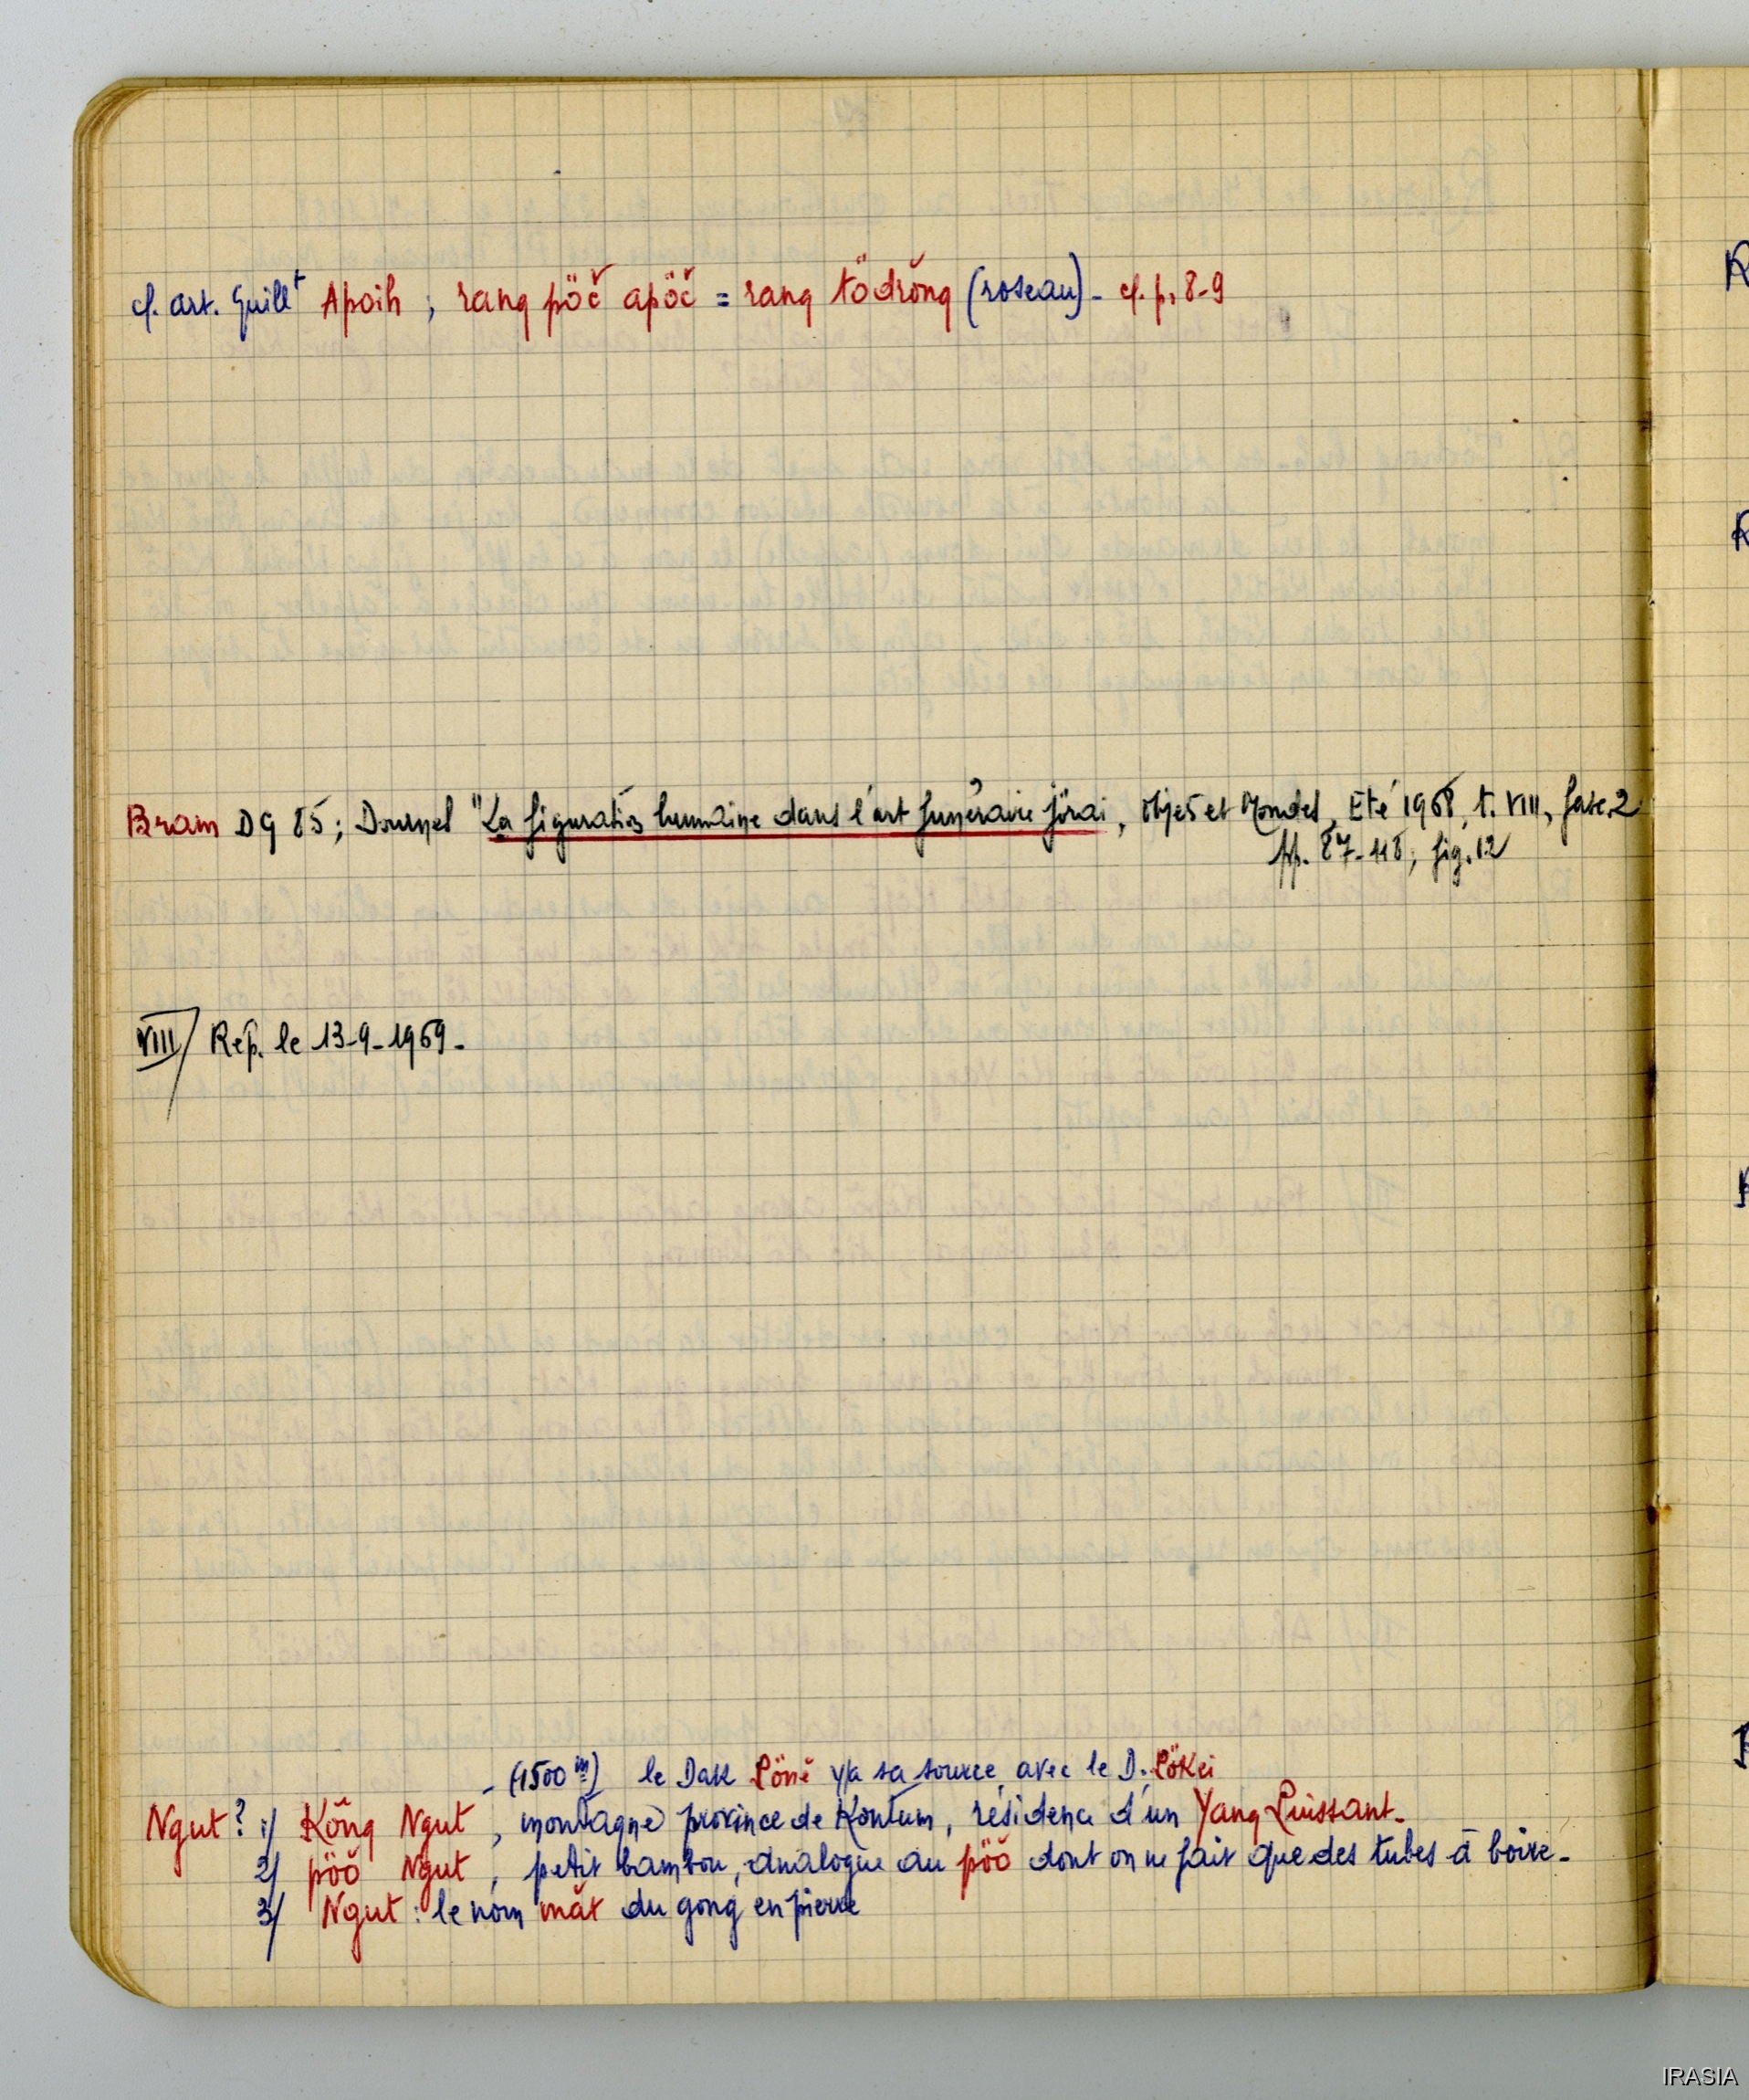 cf. art. Guillt Apoih ; rang pöč apöč = rang tödrŏng (roseau) - cf. p. 8-9
Bram DG 85 ; Dournes "La figuration humaine dans l'art funéraire jörai, Objets et Mondes, Eté 1968, t. VIII, fasc. 2
pp. 87-118, fig. 12
VIII/ Rép. le 13-9-1969 -
- (1500 m) le Dak Löné y a sa source, avec le D. Lökei
Ngut ? 1/ Kông Ngut, montagne province de Kontum, résidence d'un Yang Puissant -
2/ pöŏ Ngut, petit bambou, analogue au pöŏ dont on ne fait que des tubes à boire -
3/ Ngut : le nom măt du gong en pierre
IRASIA